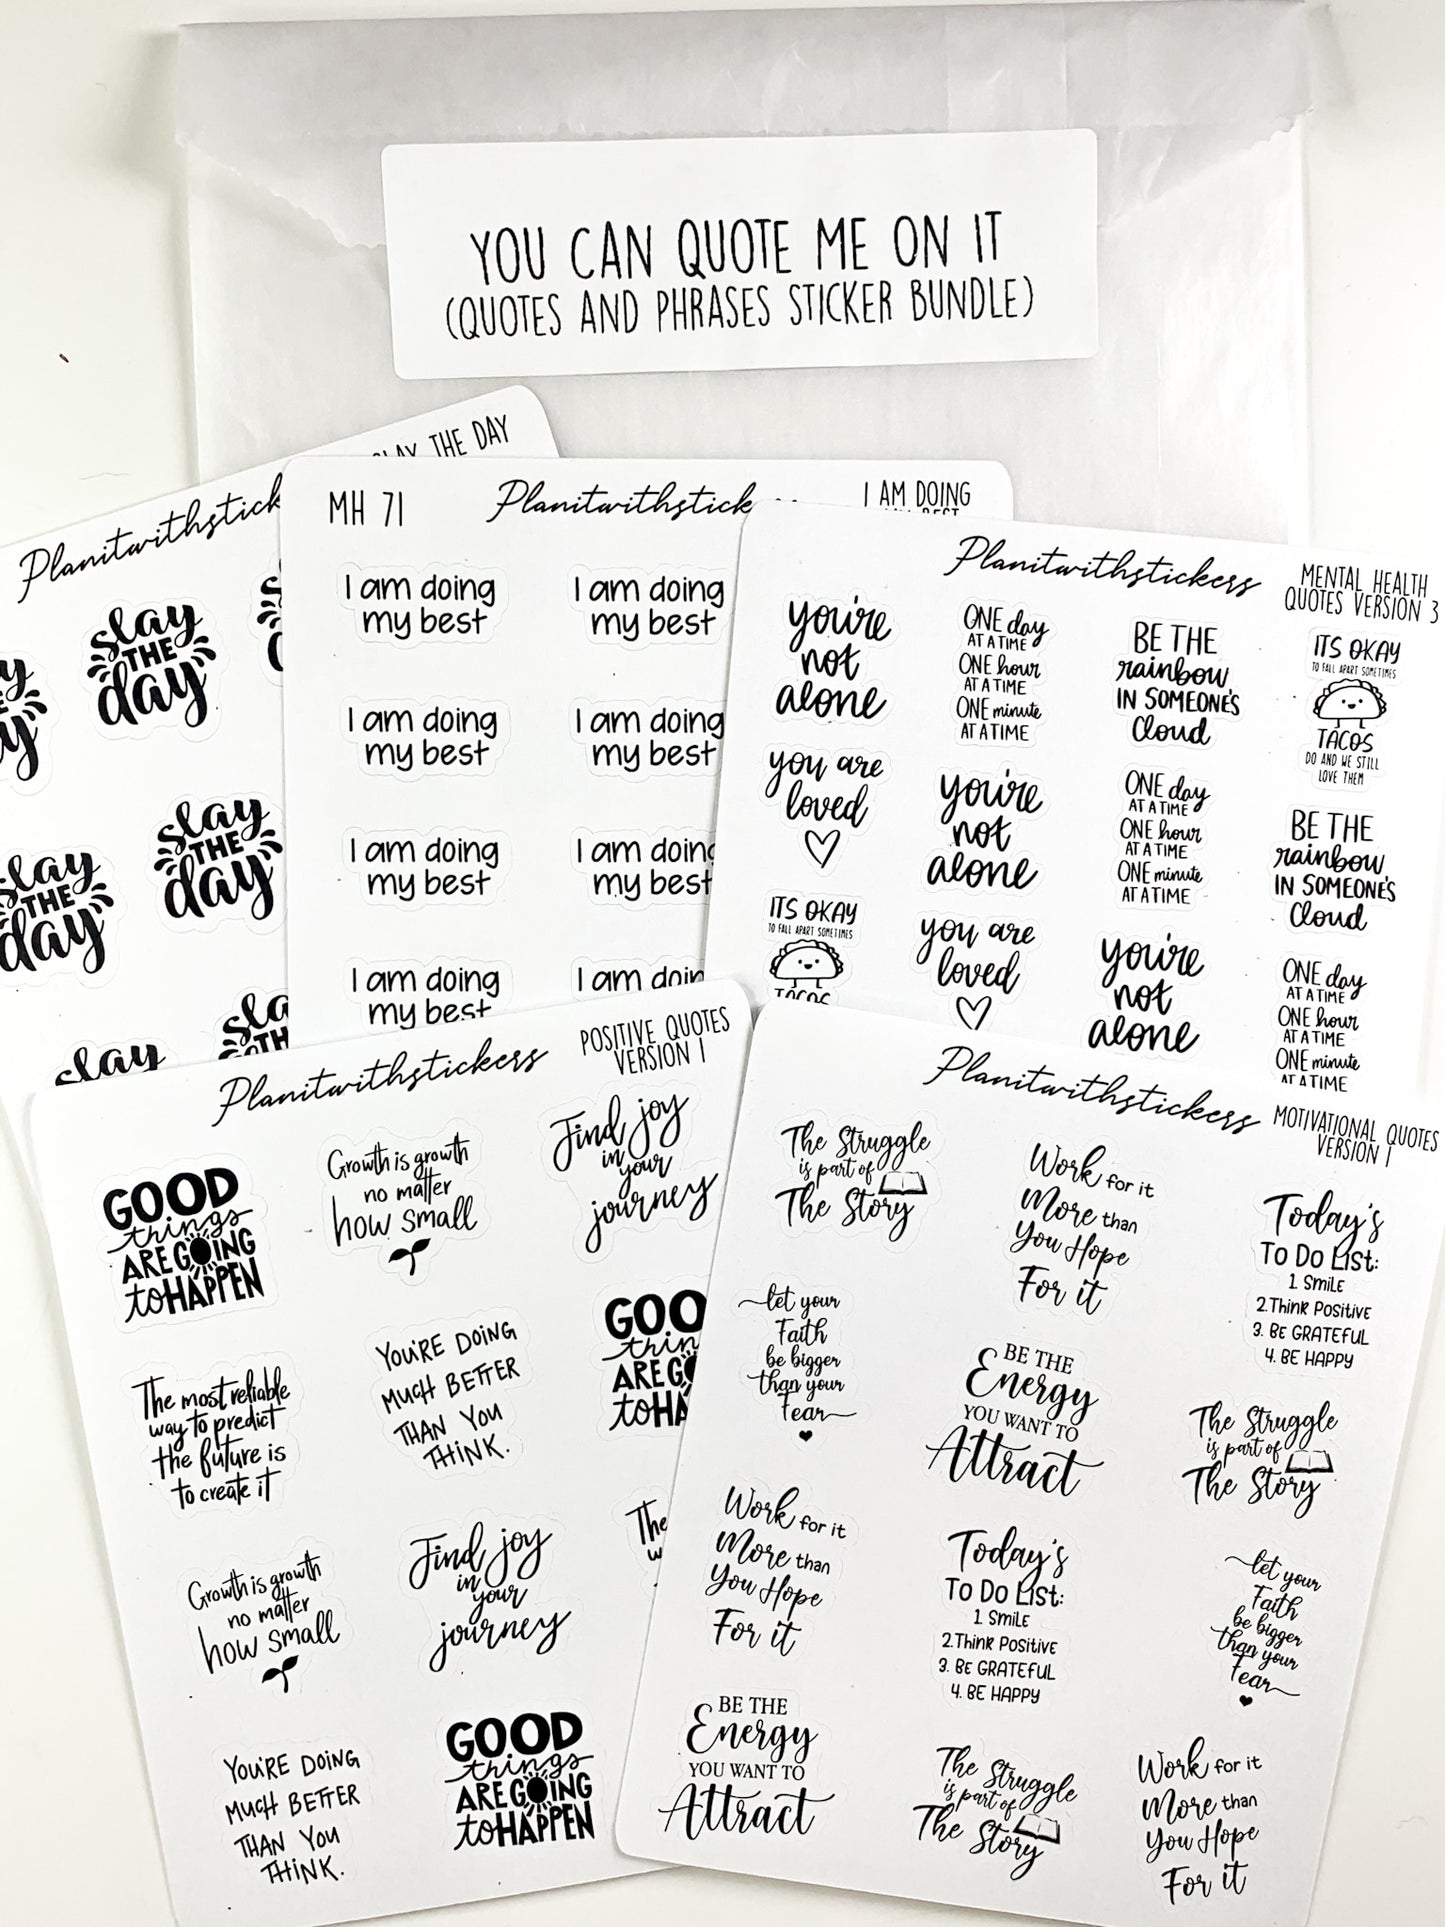 YOU CAN QUOTE ME ON IT
(QUOTES AND PHRASES STICKER BUNDLE)
SLAY THE DAY
Planitwithstick
slay
THE
day
slay
THE
day
slay
THE
day
slay
MH 71
Planitwithstick
I AM DOING
I am doing
my best
I am doing
my best
I am doing
my best
I am doing
my best
I am doing
my best
I am doing
my best
I am doing
my best
I am
Planitwithstickers
MENTAL HEALTH
QUOTES VERSION 3
you're
not
alone
ONE day
AT A TIME
ONE hour
AT A TIME
ONE minute
AT A TIME
BE THE
rainbow
IN SOMEONE'S
Cloud
ITS OKAY
TO FALL APART SOMETIMES
TACOS
DO AND WE STILL
LOVE THEM
you are
loved
you're
not
alone
ONE day
AT A TIME
ONE hour
AT A TIME
ONE minute
AT A TIME
BE THE
rainbow
IN SOMEONE'S
Cloud
ITS OKAY
TO FALL APART SOMETIMES
TACOS
you are
loved
you're
not
alone
ONE day
AT A TIME
ONE hour
AT A TIME
ONE minute
AT A TIME
Planitwithstickers
POSITIVE QUOTES
VERSION 1
GOOD
things
ARE GOING
to HAPPEN
Growth is growth
no matter
how small
Find joy
in
your
journey
The most reliable
way to predict
the future is
to create it
YOU'RE DOING
MUCH BETTER
THAN YOU
THINK.
GOO
thin
ARE GO
to HA
Growth is growth
no matter
how small
Find joy
in
your
journey
The
w
YOU'RE DOING
MUCH BETTER
THAN YOU
THINK.
GOOD
things
ARE GOING
to HAPPEN
Planitwithstickers
MOTIVATIONAL QUOTES
VERSION 1
The Struggle
is part of
The Story
Work for it
More than
You Hope
For it
Today's
To Do List:
1. Smile
2. Think Positive
3. BE GRATEFUL
4. BE HAPPY
let your
Faith
be bigger
than your
Fear
BE THE
Energy
YOU WANT TO
Attract
The Struggle
is part of
The Story
Work for it
More than
You Hope
For it
Today's
To Do List:
1. Smile
2. Think Positive
3. BE GRATEFUL
4. BE HAPPY
let your
Faith
be bigger
than your
Fear
BE THE
Energy
YOU WANT TO
Attract
The Struggle
is part of
The Story
Work for it
More than
You Hope
For it